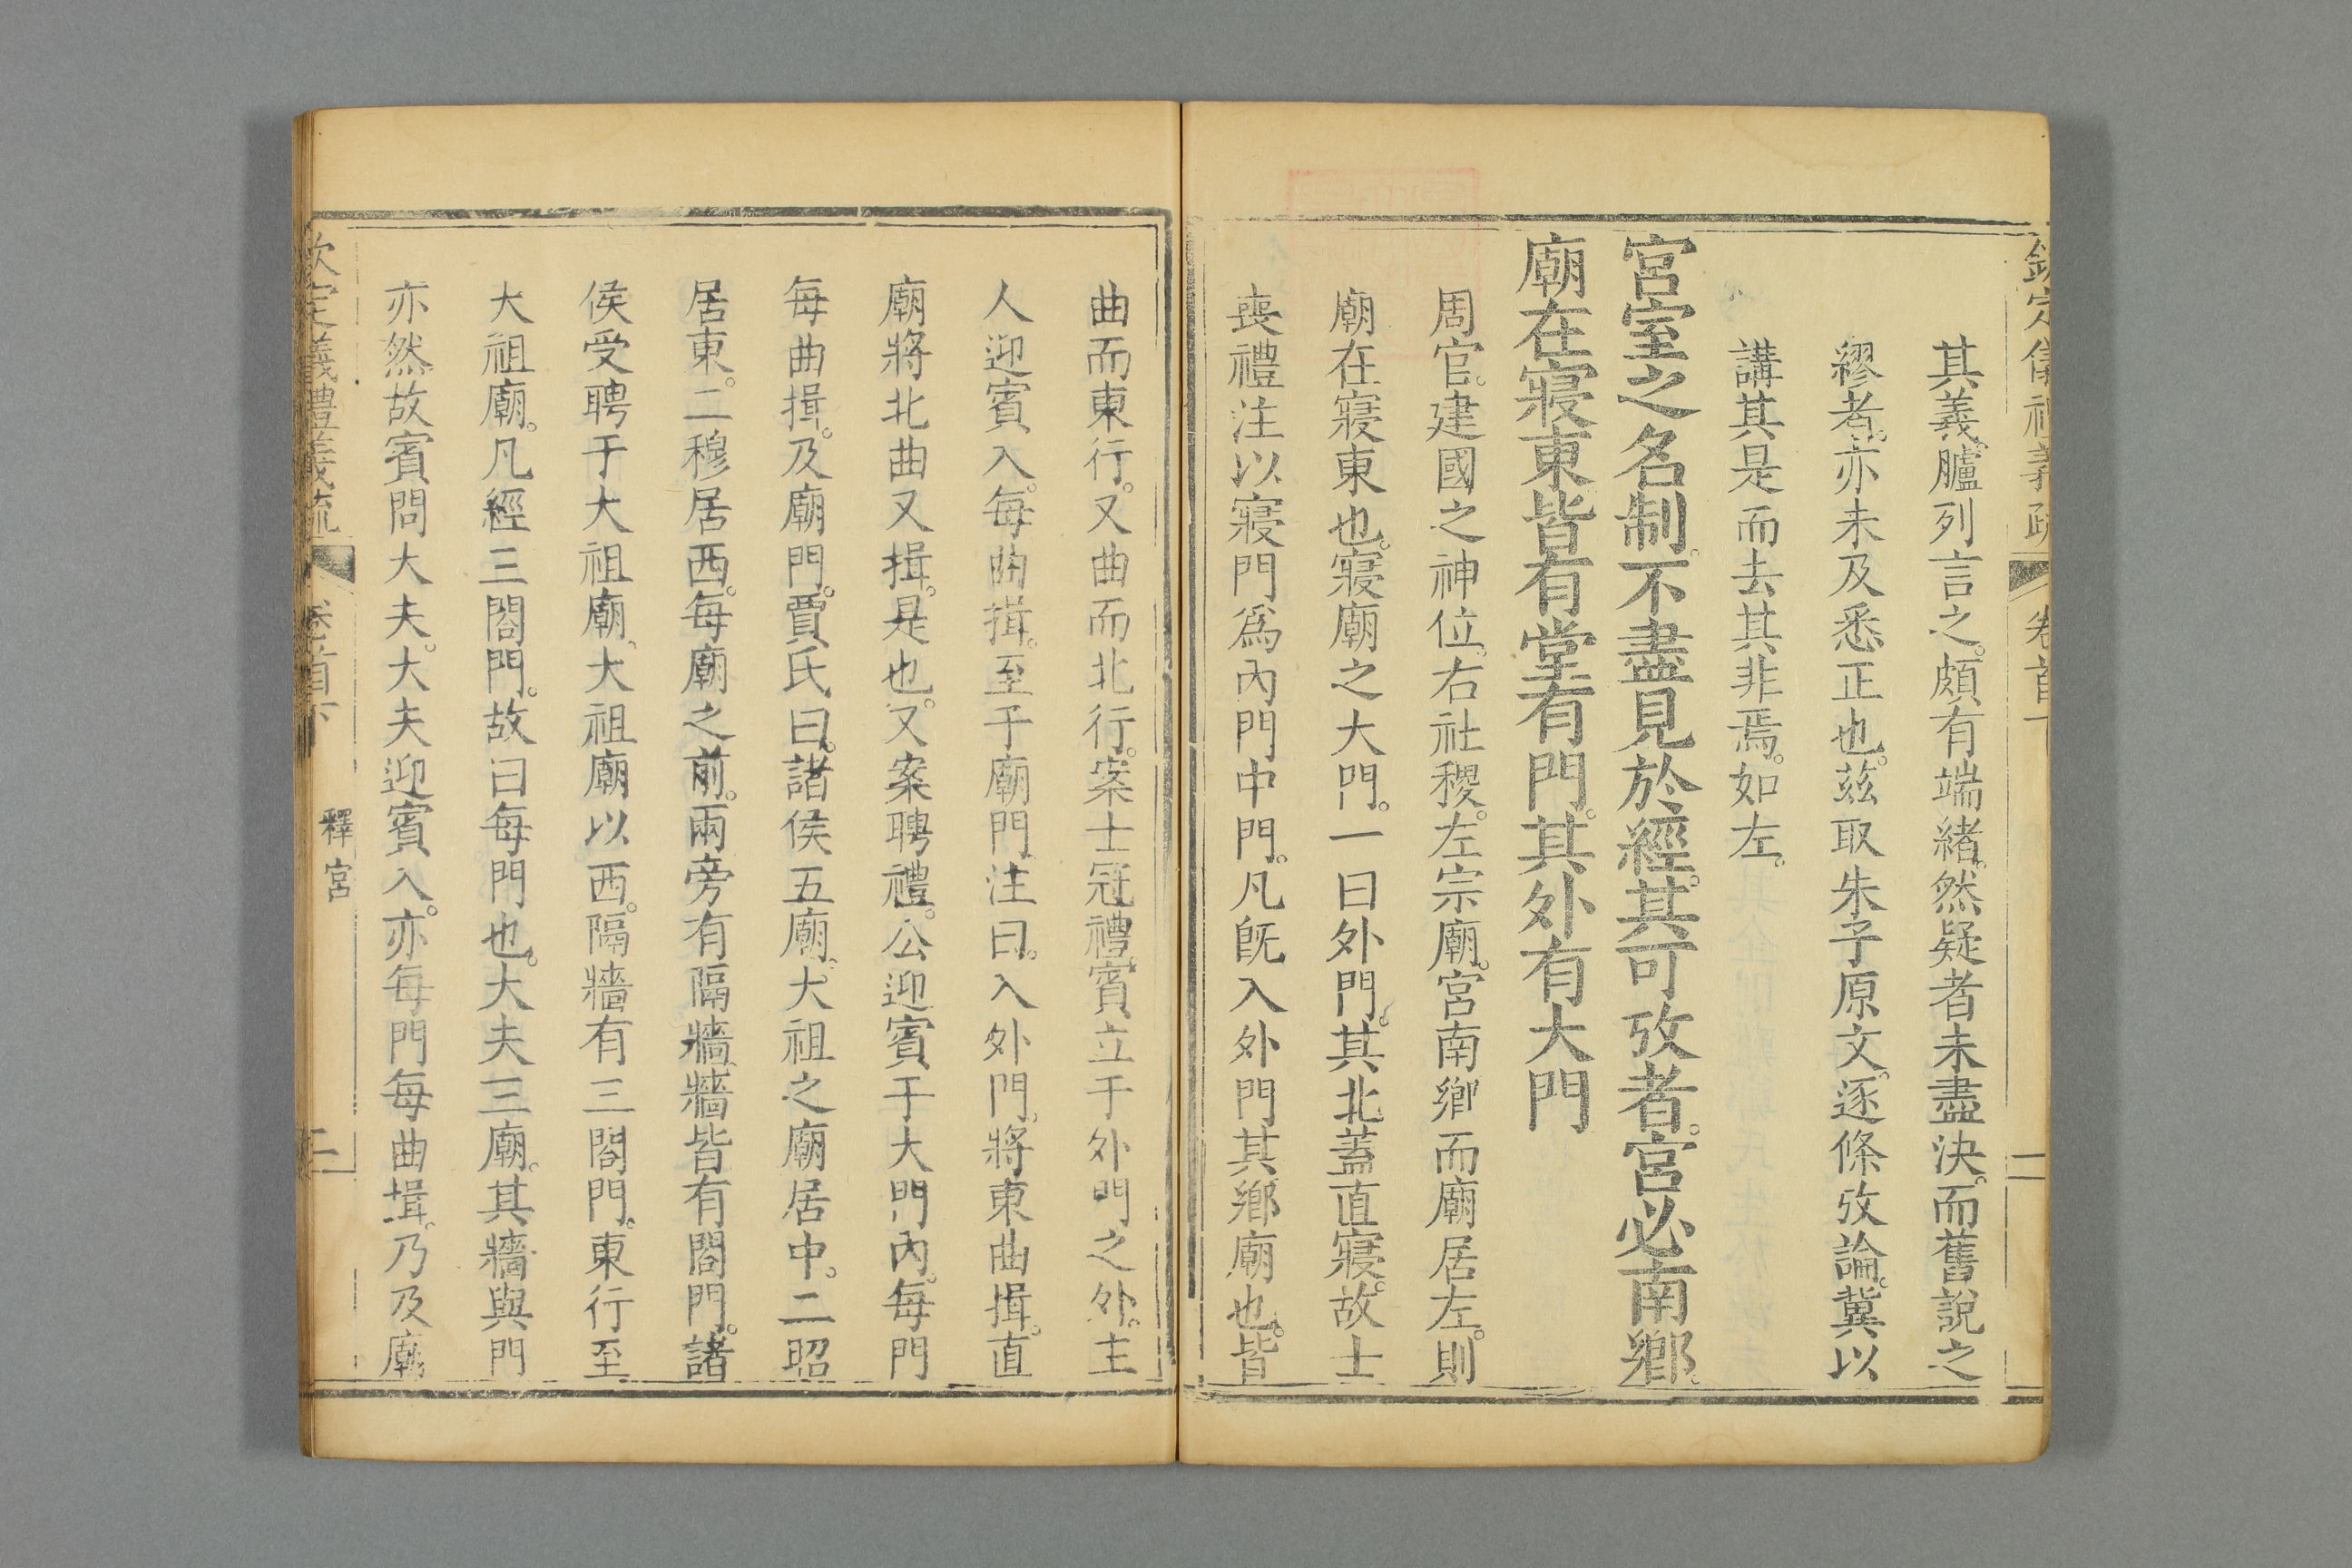 欽定儀禮義疏 卷首下 二
其義臚列言之。頗有端緒。然疑者未盡決。而舊說之
繆者。亦未及悉正也。茲取朱子原文。逐條攷論。冀以
講其是而去其非焉。如左。
宮室之名制。不盡見於經。其可攷者。宮必南鄉。
廟在寢東。皆有堂有門。其外有大門
周官。建國之神位。右社稷。左宗廟。宮南鄉而廟居左。則
廟在寢東也。寢廟之大門。一曰外門。其北蓋直寢。故士
喪禮注以寢門爲內門中門。凡旣入外門其鄉廟也。皆
曲而東行。又曲而北行。案士冠禮。賓立于外門之外。主
人迎賓入。每曲揖。至于廟門注曰。入外門。將東曲揖。直
廟將北曲又揖。是也。又案聘禮。公迎賓于大門內。每門
每曲揖。及廟門。賈氏曰。諸侯五廟。大祖之廟居中。二昭
居東。二穆居西。每廟之前。兩旁有隔牆。牆皆有閤門。諸
侯受聘于大祖廟。大祖廟以西。隔牆有三閤門。東行至
大祖廟。凡經三閤門。故曰每門也。大夫三廟。其牆與門
亦然故賓問大夫。大夫迎賓入。亦每門每曲揖。乃及廟
欽定儀禮義疏 卷首下 釋宮 二